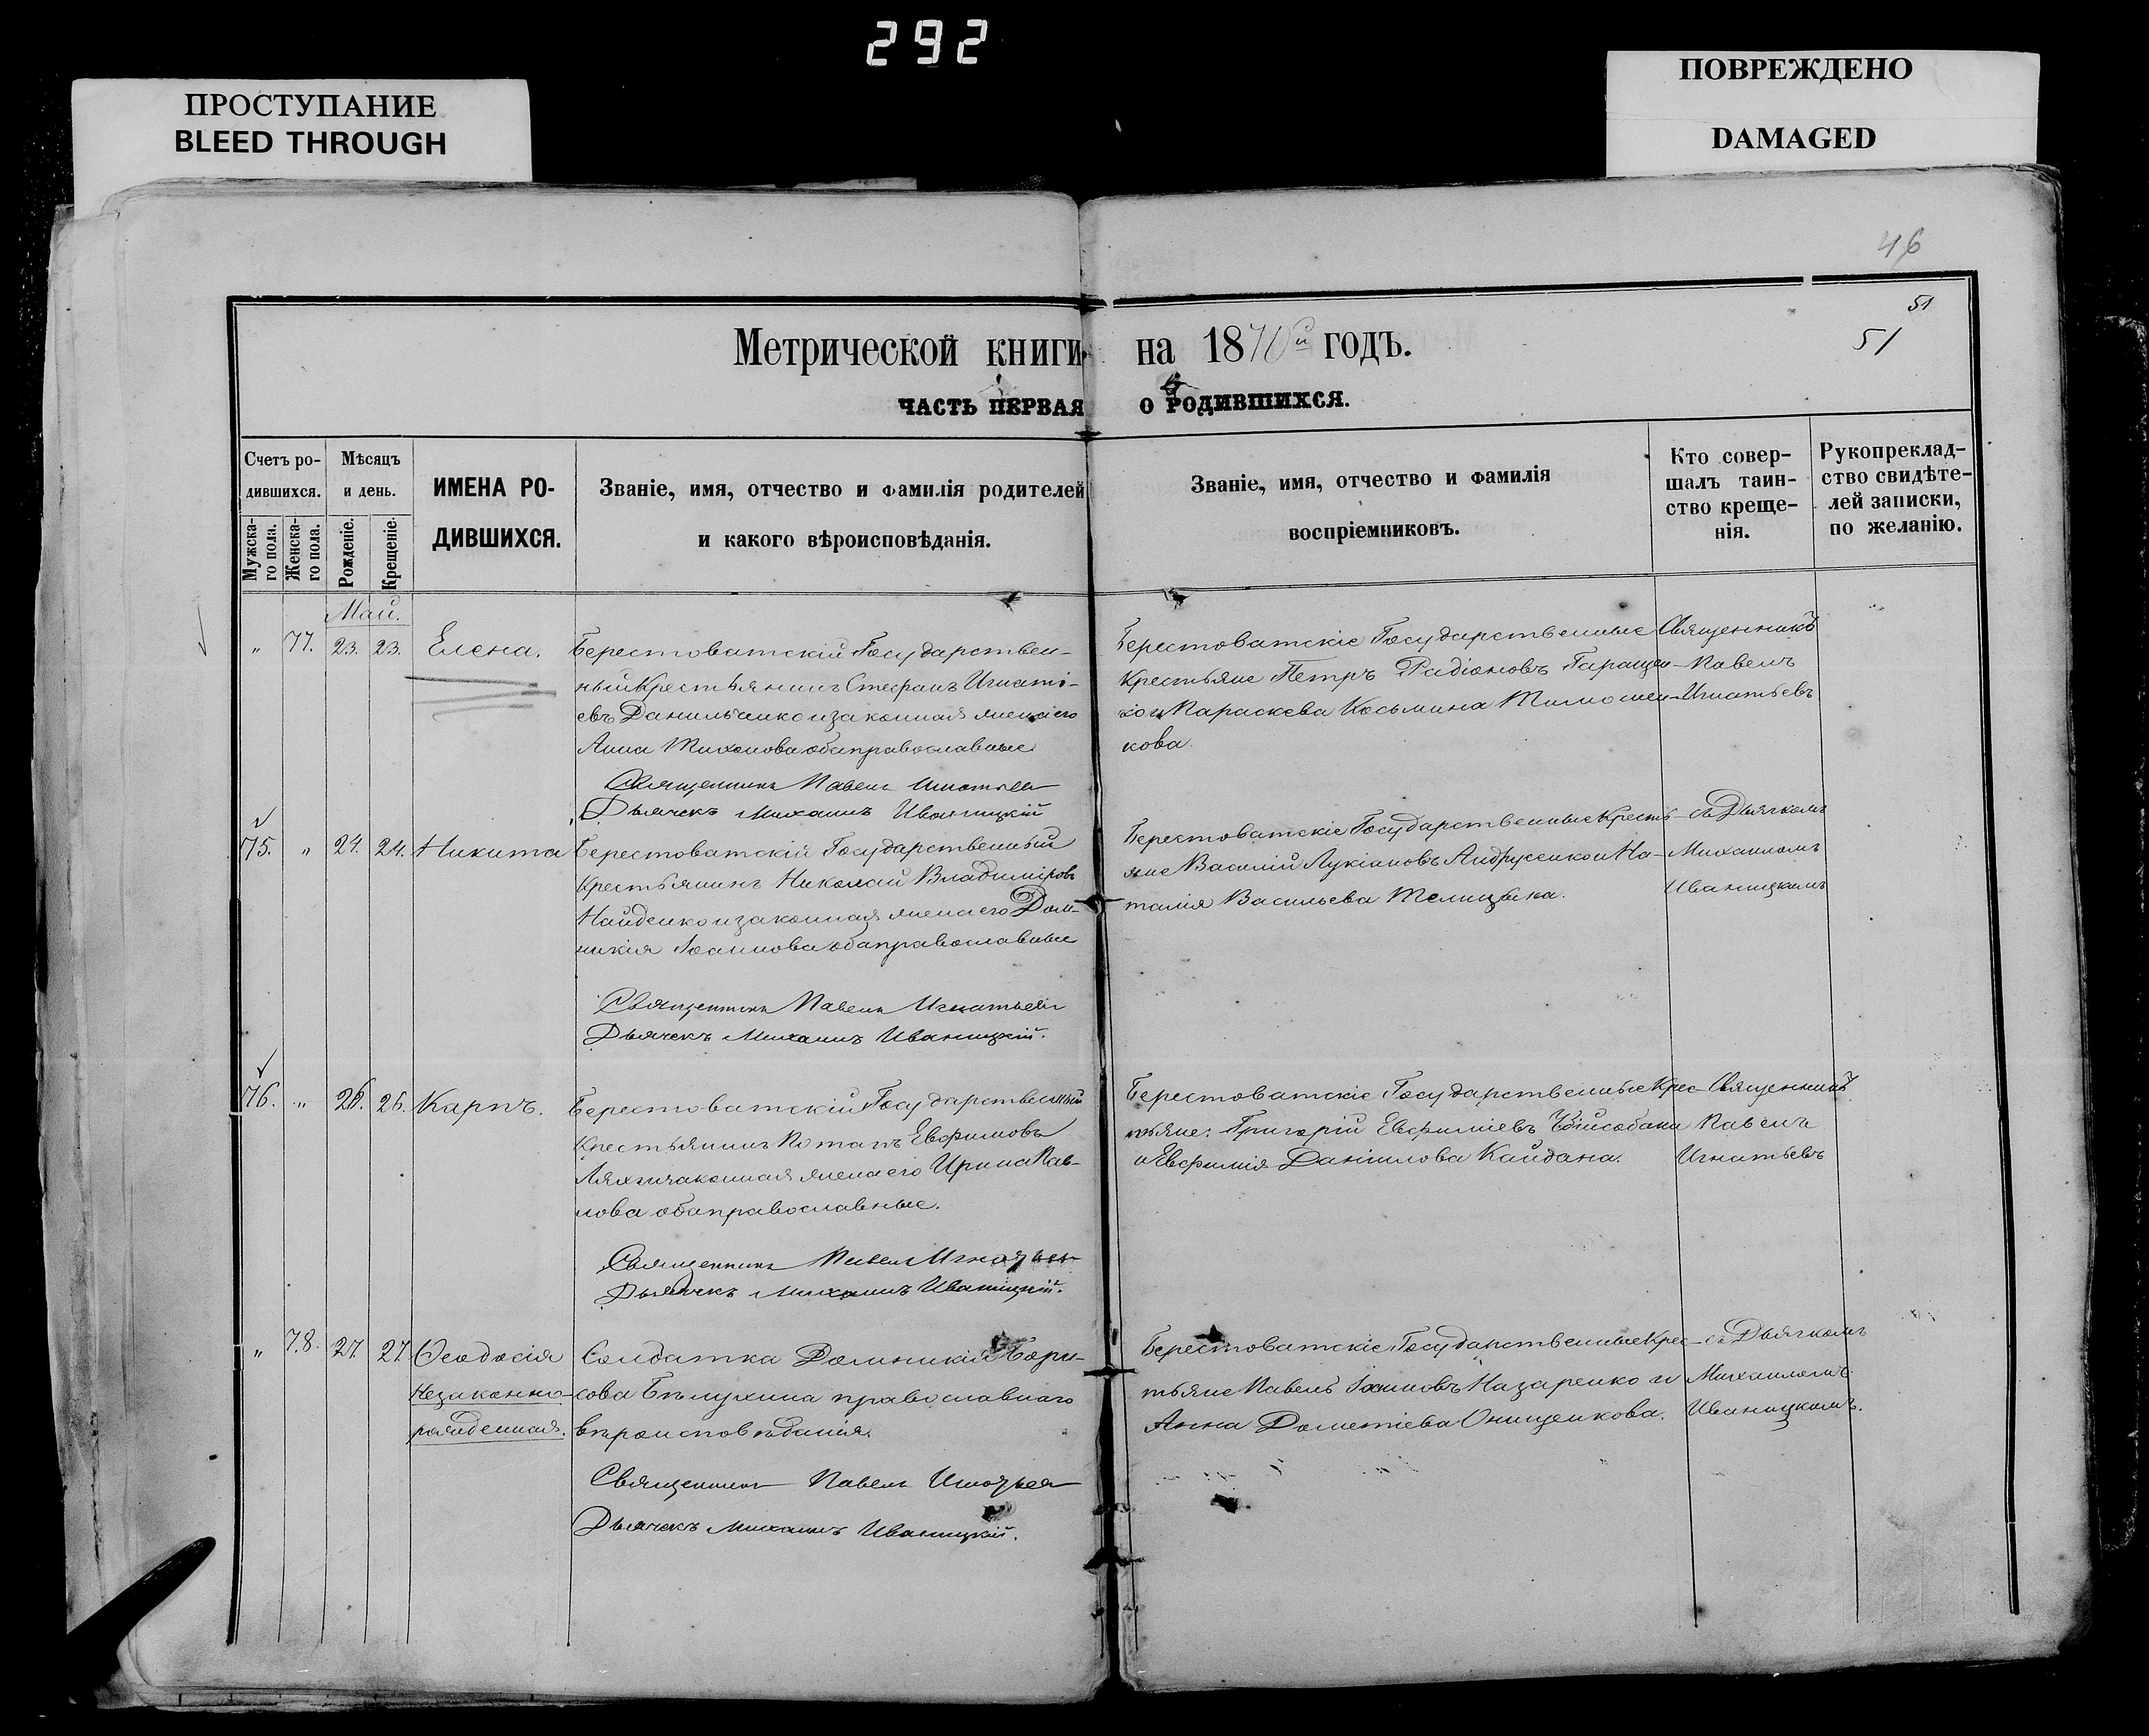 292
ПРОСТУПАНИЕ
BLEED THROUGH
ПОВРЕЖДЕНО
DAMAGED
46
51
51
Метрической книги на 1870й годъ.
ЧАСТЬ ПЕРВАЯ О РОДИВШИХСЯ.
Счетъ ро-
дившихся.
Мужска-
го пола.
Женска-
го пола.
Мѣсяцъ
и день.
Рожденіе.
Крещеніе.
ИМЕНА РО-
ДИВШИХСЯ.
Званіе, имя, отчество и фамилія родителей
и какого вѣроисповѣданія.
Званіе, имя, отчество и фамилія
воспріемниковъ.
Кто совер-
шалъ таин-
ство креще-
нія.
Рукопреклад-
ство свидѣте-
лей записки,
по желанію.
Май.
" 77. 23. 23. Елена.
Берестоватскій Государствен-
ный Крестьянинъ Стефанъ Игнаті-
евъ Данильченко и законная жена его
Анна Тихонова оба православные
Священникъ Павелъ Игнатьевъ
Дьячекъ Михаилъ Иваницкій
Берестоватскіе Государственные
Крестьяне Петръ Радіоновъ Гаращен-
ко и Параскева Косьмина Тимошен-
кова.
Священникъ
Павелъ
Игнатьевъ
75. " 24. 24. Никита
Берестоватскій Государственный
Крестьянинъ Николай Владиміровъ
Найденко и законная жена его Дом-
никія Іоаннова оба православные
Священникъ Павелъ Игнатьевъ
Дьячекъ Михаилъ Иваницкій.
Берестоватскіе Государственные Кресть-
яне Василій Лукіановъ Андрусенко и На-
талія Васильева
съ Дьячкомъ
Михаиломъ
Иваницкимъ
76. " 26. 26. Карпъ.
Берестоватскій Государственный
Крестьянинъ Потапъ Евфимовъ
Ляхъ и законная жена его Ирина Пав-
лова оба православные.
Священникъ Павелъ Игнатьевъ
Дьячекъ Михаилъ Иваницкій.
Берестоватскіе Государственные Крес-
тьяне: Григорій Евфиміевъ
и Евфимія Даніилова Кайдана.
Священникъ
Павелъ
Игнатьевъ
" 78. 27. 27. Ѳеодосія
Незаконно-
рожденная.
Солдатка Домникія Бори-
сова Бѣлухина православнаго
вѣроисповѣданія.
Священникъ Павелъ Игнатьевъ
Дьячекъ Михаилъ Иваницкій.
Берестоватскіе Государственные Крес-
тьяне Павелъ Іоанновъ Назаренко и
Анна Дометіева Онищенкова.
съ Дьячкомъ
Михаиломъ
Иваницкимъ.